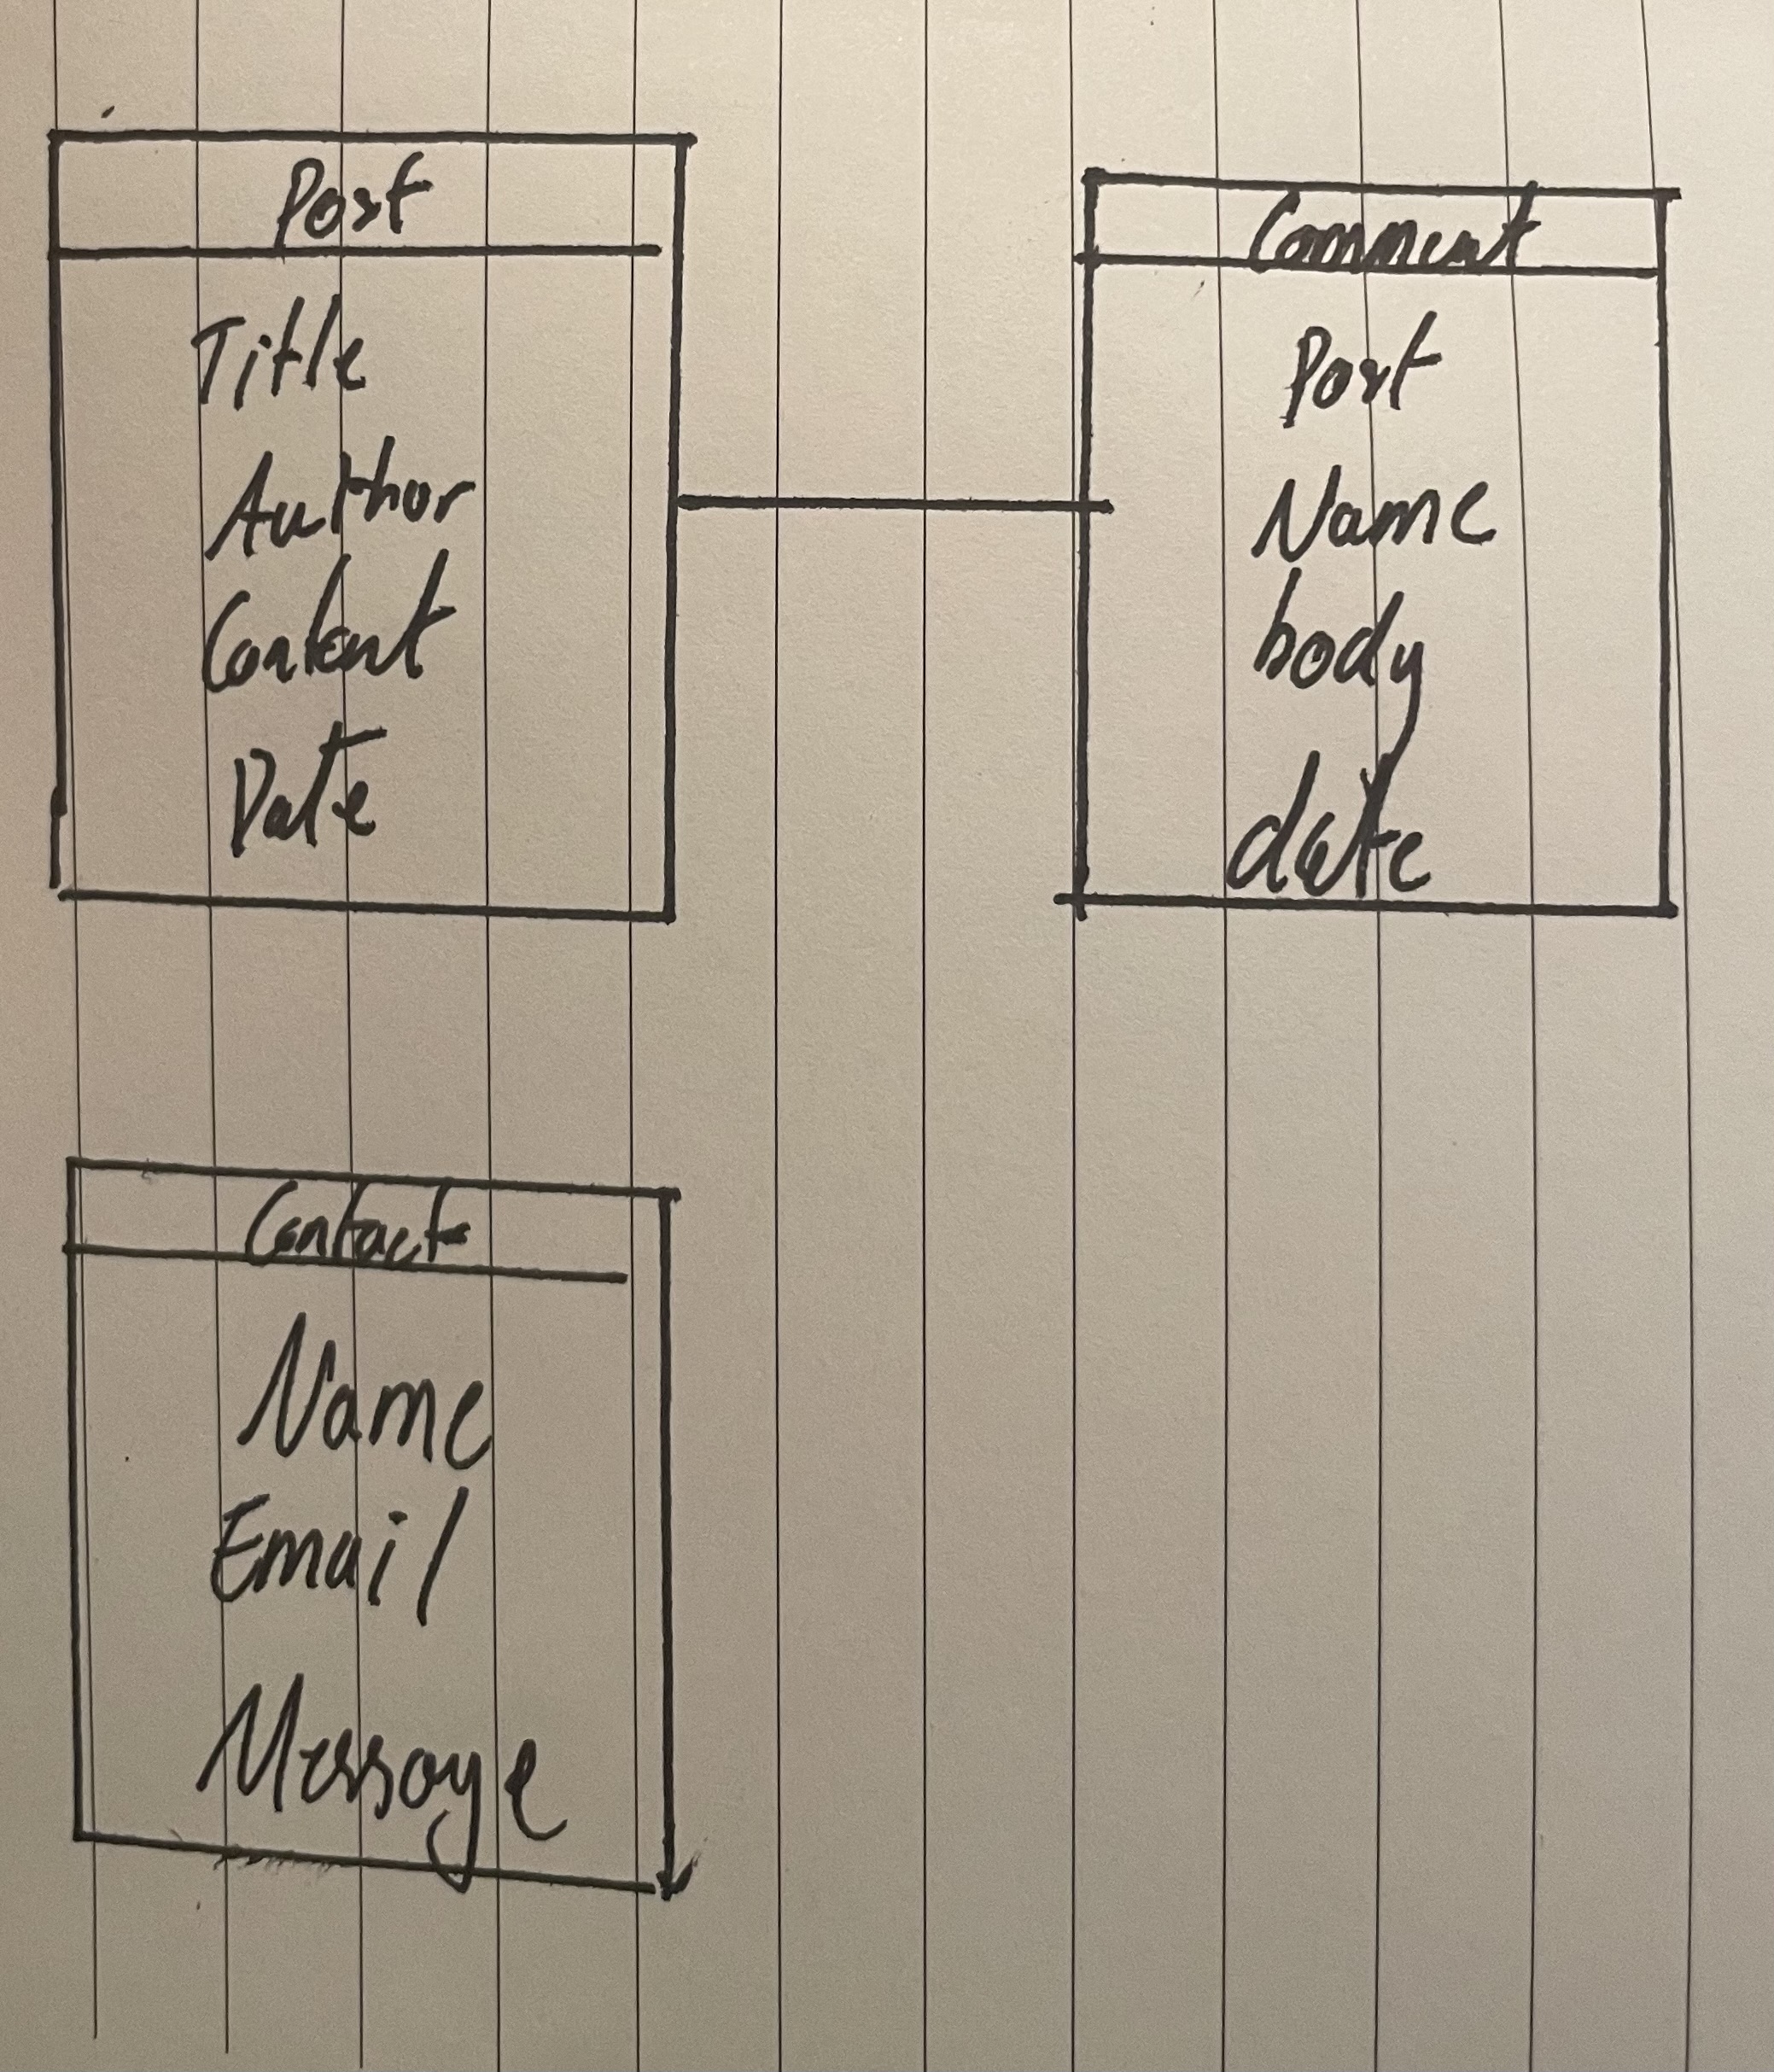 Post
Title
Author
Content
Date
Comment
Post
Name
body
date
Contact
Name
Email
Message